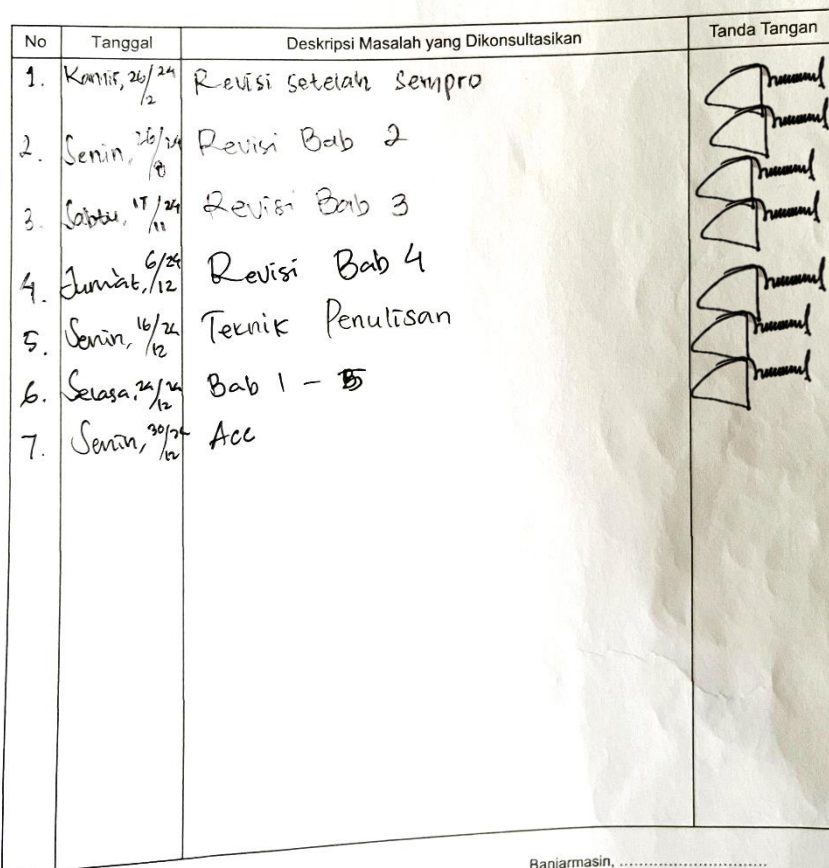 No Tanggal Deskripsi Masalah yang Dikonsultasikan Tanda Tangan
1. Kamis, 26/2 24 Revisi setelah Sempro
2. Senin, 26/8 24 Revisi Bab 2
3. Sabtu, 17/11 24 Revisi Bab 3
4. Jumat, 6/12 24 Revisi Bab 4
5. Senin, 16/12 24 Teknik Penulisan
6. Selasa, 24/12 24 Bab 1 - 5
7. Senin, 30/12 24 Acc
Banjarmasin, ............................